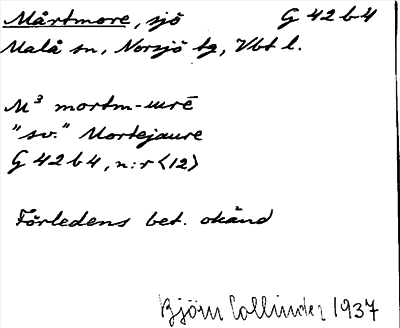 Mårtmore, sjö G 42 b4
Malå sn, Norsjö tg, Vbt l.
M³ mortm-urē
"sv." Mortejaure
G 42 b4, n:r <12>
Förledens bet. okänd
Björn Collinder 1937